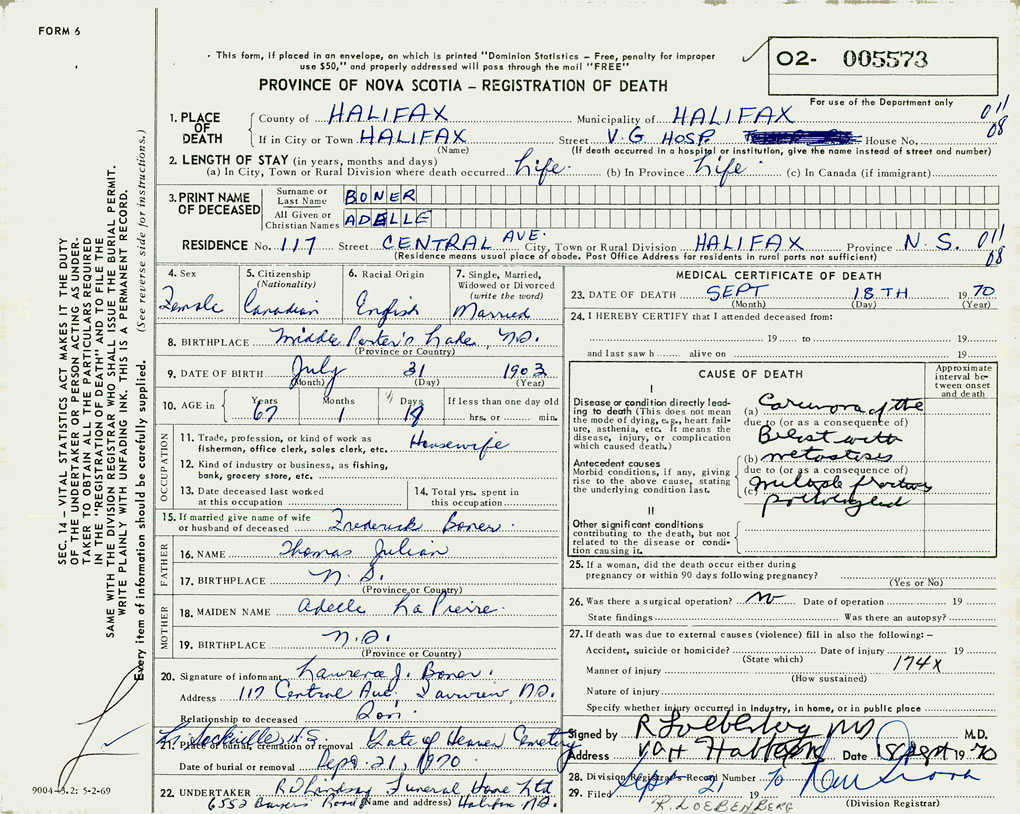 FORM 6
· This form, if placed in an envelope, on which is printed "Dominion Statistics – Free, penalty for improper
use $50," and properly addressed will pass through the mail "FREE"
O2- 005573
For use of the Department only
PROVINCE OF NOVA SCOTIA – REGISTRATION OF DEATH
1. PLACE OF DEATH
County of HALIFAX Municipality of HALIFAX 011
If in City or Town HALIFAX Street V.G HOSP. House No. 08
(Name) (If death occurred in a hospital or institution, give the name instead of street and number)
2. LENGTH OF STAY (in years, months and days)
(a) In City, Town or Rural Division where death occurred Life. (b) In Province Life. (c) In Canada (if immigrant)
3. PRINT NAME OF DECEASED
Surname or Last Name BONER
All Given or Christian Names ADELLE
RESIDENCE No. 117 Street CENTRAL AVE. City, Town or Rural Division HALIFAX Province N.S. 011
(Residence means usual place of abode. Post Office Address for residents in rural parts not sufficient) 08
4. Sex Female
5. Citizenship (Nationality) Canadian
6. Racial Origin English
7. Single, Married, Widowed or Divorced (write the word) Married
8. BIRTHPLACE Middle Porter's Lake, N.S.
(Province or Country)
9. DATE OF BIRTH July 31 1903
(Month) (Day) (Year)
10. AGE in Years 67 Months 1 Days 18 If less than one day old hrs. or min.
OCCUPATION
11. Trade, profession, or kind of work as fisherman, office clerk, sales clerk, etc. Housewife
12. Kind of industry or business, as fishing, bank, grocery store, etc.
13. Date deceased last worked at this occupation
14. Total yrs. spent in this occupation
15. If married give name of wife or husband of deceased Frederick Boner
FATHER
16. NAME Thomas Julian
17. BIRTHPLACE N.S.
(Province or Country)
MOTHER
18. MAIDEN NAME Adelle LaPierre
19. BIRTHPLACE N.S.
(Province or Country)
20. Signature of informant J. Boner.
Address 117 Central Ave. Fairview, N.S.
Relationship to deceased Son
21. Place of burial, cremation or removal Sackville N.S. Gate of Heaven Cemetery
Date of burial or removal Sept. 21, 1970
22. UNDERTAKER Funeral Home Ltd
6552 Bayers Road Halifax N.S.
(Name and address)
MEDICAL CERTIFICATE OF DEATH
23. DATE OF DEATH SEPT 18TH 1970
(Month) (Day) (Year)
24. I HEREBY CERTIFY that I attended deceased from:
19 to 19
and last saw h alive on 19
CAUSE OF DEATH
Approximate interval between onset and death
I
Disease or condition directly leading to death (This does not mean the mode of dying, e.g., heart failure, asthenia, etc. It means the disease, injury, or complication which caused death.)
(a) Carcinoma of the
due to (or as a consequence of)
Breast with
Antecedent causes
Morbid conditions, if any, giving rise to the above cause, stating the underlying condition last.
(b) metastases
due to (or as a consequence of)
(c) multiple fractures
II
Other significant conditions contributing to the death, but not related to the disease or condition causing it.
25. If a woman, did the death occur either during pregnancy or within 90 days following pregnancy?
(Yes or No)
26. Was there a surgical operation? no Date of operation 19
State findings Was there an autopsy?
27. If death was due to external causes (violence) fill in also the following: –
Accident, suicide or homicide? Date of injury 19
(State which) 174X
Manner of injury
(How sustained)
Nature of injury
Specify whether injury occurred in industry, in home, or in public place
Signed by M.D.
Address Date 18 Sept 1970
28. Division Registrar's Record Number
29. Filed Sept 21 1970
(Division Registrar)
R. LOEBENBERG
SEC. 14 – VITAL STATISTICS ACT MAKES IT THE DUTY
OF THE UNDERTAKER OR PERSON ACTING AS UNDER-
TAKER TO OBTAIN ALL THE PARTICULARS REQUIRED
IN THE "REGISTRATION OF DEATH" AND TO FILE THE
SAME WITH THE DIVISION REGISTRAR WHO SHALL ISSUE THE BURIAL PERMIT.
WRITE PLAINLY WITH UNFADING INK. THIS IS A PERMANENT RECORD.
Every item of information should be carefully supplied. (See reverse side for instructions.)